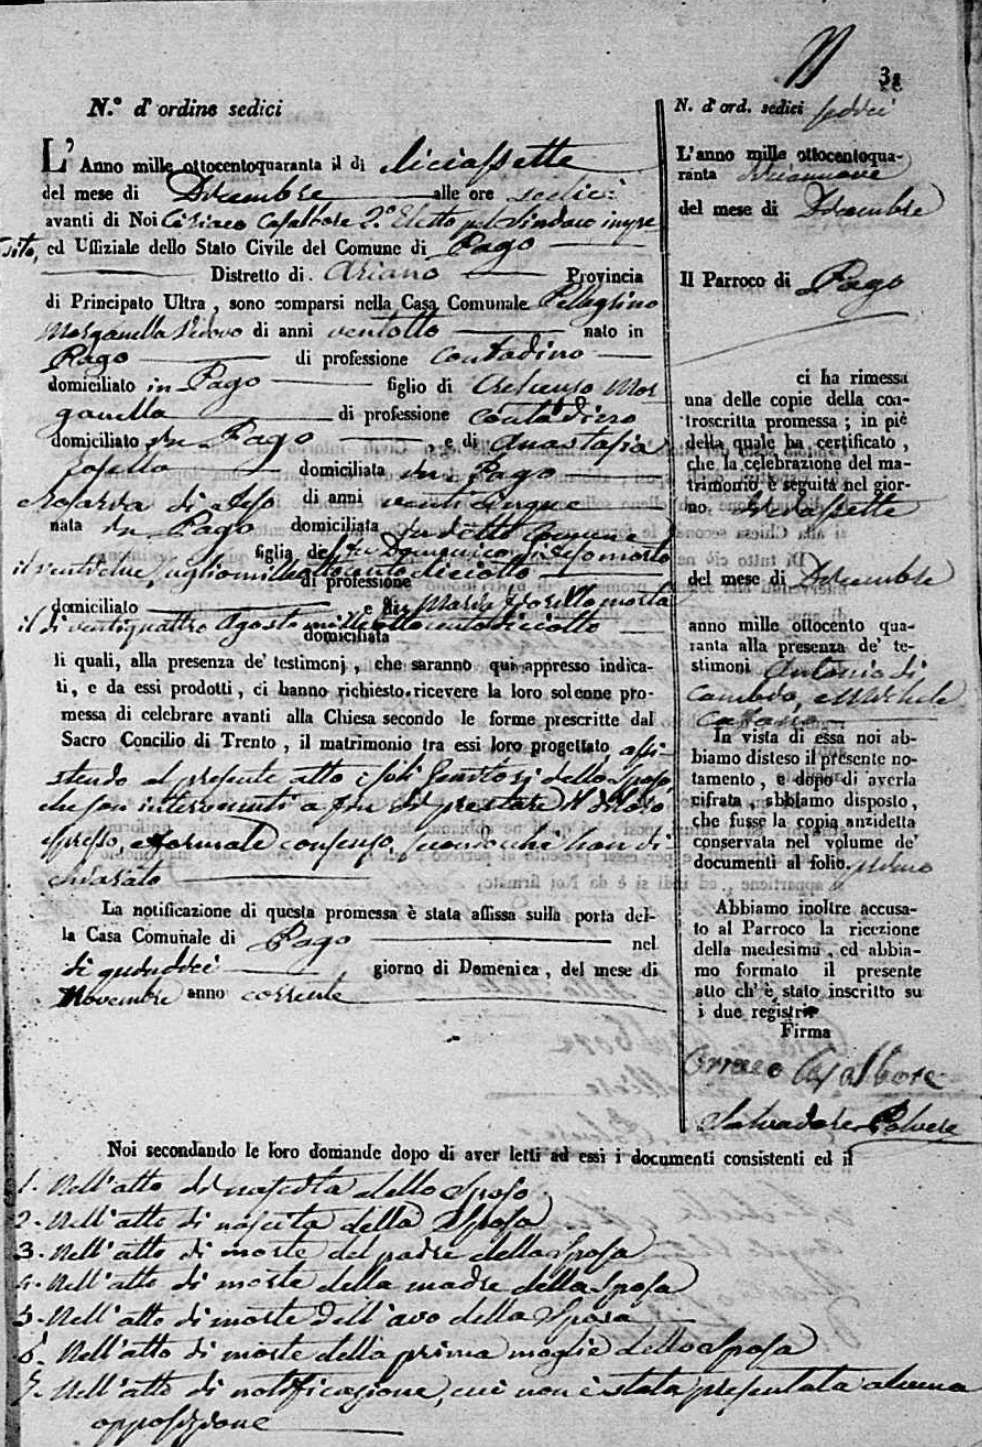 38
N.º d'ordine sedici
L'Anno mille ottocentoquaranta il di diciassette
del mese di Dicembre alle ore sedici
avanti di Noi Ciriaco Casalbore 2.º Eletto pel Sindaco impe
dito, ed Uffiziale dello Stato Civile del Comune di Pago
Distretto di Ariano Provincia
di Principato Ultra, sono comparsi nella Casa Comunale Pellegrino
Morganella Vedovo di anni ventotto nato in
Pago di professione contadino
domiciliato in Pago figlio di Crescenzo Mor
ganella di professione contadino
domiciliato in Pago, e di Anastasia
domiciliata in Pago
di anni venticinque
nata in Pago domiciliata in detto Comune
figlia del fu Domenico morto
il ventidue Luglio mille ottocento diciotto
di professione
domiciliato e fu Maria morta
il di ventiquattro Agosto mille ottocento diciotto
domiciliata
li quali, alla presenza de' testimonj, che saranno qui appresso indica-
ti, e da essi prodotti, ci hanno richiesto ricevere la loro solenne pro-
messa di celebrare avanti alla Chiesa secondo le forme prescritte dal
Sacro Concilio di Trento, il matrimonio tra essi loro progettato assi
stendo al presente atto i soli Genitori dello Sposo,
che son intervenuti a fin di prestare il di loro
espresso, e formale consenso, secondo che han di
chiarato
La notificazione di questa promessa è stata affissa sulla porta del-
la Casa Comunale di Pago nel
di quindici giorno di Domenica, del mese di
Novembre anno corrente
N. d'ord. sedici sedici
L'anno mille ottocentoqua-
ranta diciannove
del mese di Dicembre
Il Parroco di Pago
ci ha rimessa
una delle copie della con-
troscritta promessa; in piè
della quale ha certificato,
che la celebrazione del ma-
trimonio è seguita nel gior-
no diciassette
del mese di Dicembre
anno mille ottocento qua-
ranta alla presenza de' te-
stimoni Antonio di
e Michele
Catano
In vista di essa noi ab-
biamo disteso il presente no-
tamento, e dopo di averla
cifrata, abbiamo disposto,
che fusse la copia anzidetta
conservata nel volume de'
documenti al folio primo
Abbiamo inoltre accusa-
to al Parroco la ricezione
della medesima, ed abbia-
mo formato il presente
atto ch' è stato inscritto su
i due registri
Firma
Ciriaco Casalbore
Salvadore Polvere
Noi secondando le loro domande dopo di aver letti ad essi i documenti consistenti ed il
1. Nell'atto di nascita dello Sposo
2. Nell'atto di nascita della Sposa
3. Nell'atto di morte del padre della Sposa
4. Nell'atto di morte della madre della Sposa
5. Nell'atto di morte dell'avo della Sposa
6. Nell'atto di morte della prima moglie dello Sposo
7. Nell'atto di notificazione, cui non è stata presentata alcuna
opposizione